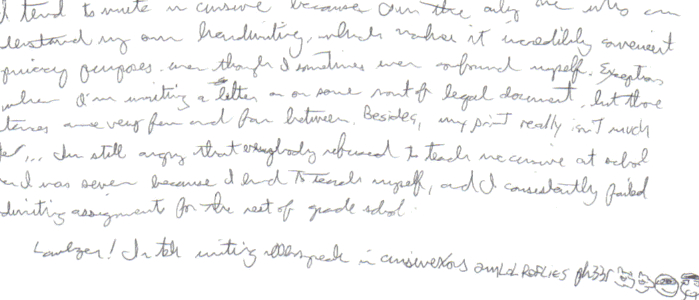 I tend to write in cursive because I'm the only one who can
derstand my own handwriting, which makes it incredibly convenient
privacy purposes, even though I sometimes even confound myself. Exception
when I'm writing a letter or on some sort of legal document, but those
tances are very few and far between. Besides, my print really isn't much
... I'm still angry that everybody refused to teach me cursive at school
I was seven because I had to teach myself, and I consistently failed
dwriting assignment for the rest of grade school.
I writing in cursive ph33r